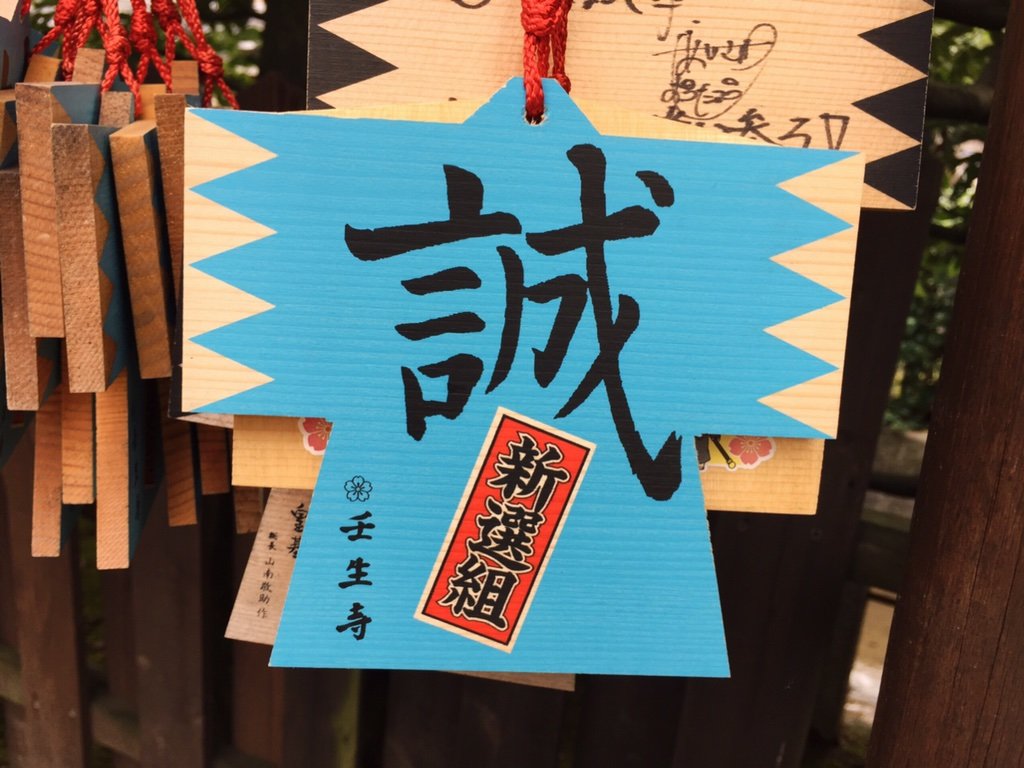 誠
新選組
壬生寺
総長 山南敬助 作